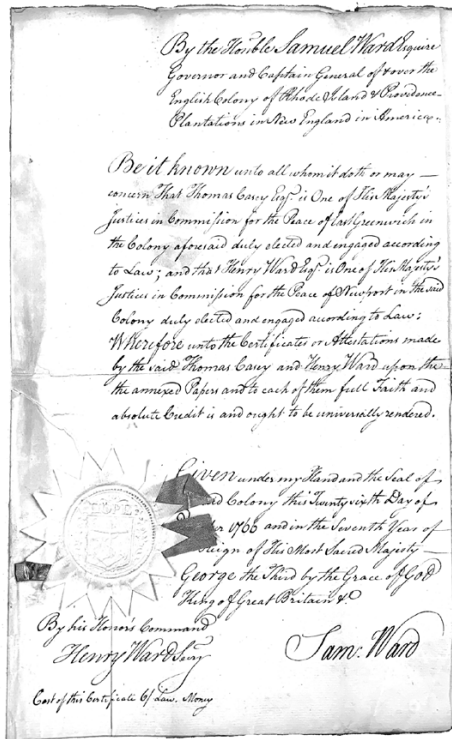 By the Honble Samuel Ward Esquire
Governor and Captain General of & over the
English Colony of Rhode Island & Providence
Plantations in New England in America.
Be it known unto all whom it doth or may
concern That Thomas Casey Esqr. is One of His Majesty's
Justices in Commission for the Peace of East Greenwich in
the Colony aforesaid duly elected and engaged according
to Law; and that Henry Ward Esqr. is One of His Majesty's
Justices in Commission for the Peace of Newport in the said
Colony duly elected and engaged according to Law:
Wherefore unto the Certificates or Attestations made
by the said Thomas Casey and Henry Ward upon the
the annexed Papers and to each of them full Faith and
absolute Credit is and ought to be universally rendered.
Given under my Hand and the Seal of
Colony this Twenty sixth Day of
1766 and in the Seventh Year of
Reign of His Most Sacred Majesty
George the Third by the Grace of God
King of Great Britain &c
HOPE
By his Honor's Command
Henry Ward Secry
Sam: Ward
Cost of this Certificate 6/ Law. Money